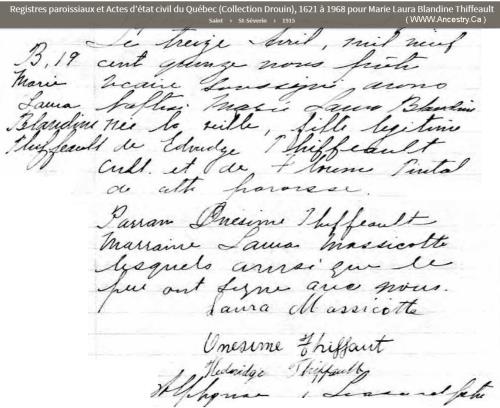 Registres paroissiaux et Actes d'état civil du Québec (Collection Drouin), 1621 à 1968 pour Marie Laura Blandine Thiffeault
Saint › St-Séverin › 1915
( WWW.Ancestry.Ca )
B, 19
Marie
Laura
Blandine
Thiffeault
Le treize Avril, mil neuf
cent quinze nous prêtre
vicaire soussigné avons
baptisé Marie Laura Blandine
née la veille, fille légitime
de Edridge Thiffeault
cult. et de Pintal
de cette paroisse.
Parrain Onesime Thiffeault
Marraine Laura Massicotte
lesquels ainsi que le
père ont signé avec nous.
Laura Massicotte
Onesime Thiffaut
Hedridge Thiffeault
Alphonse ptre